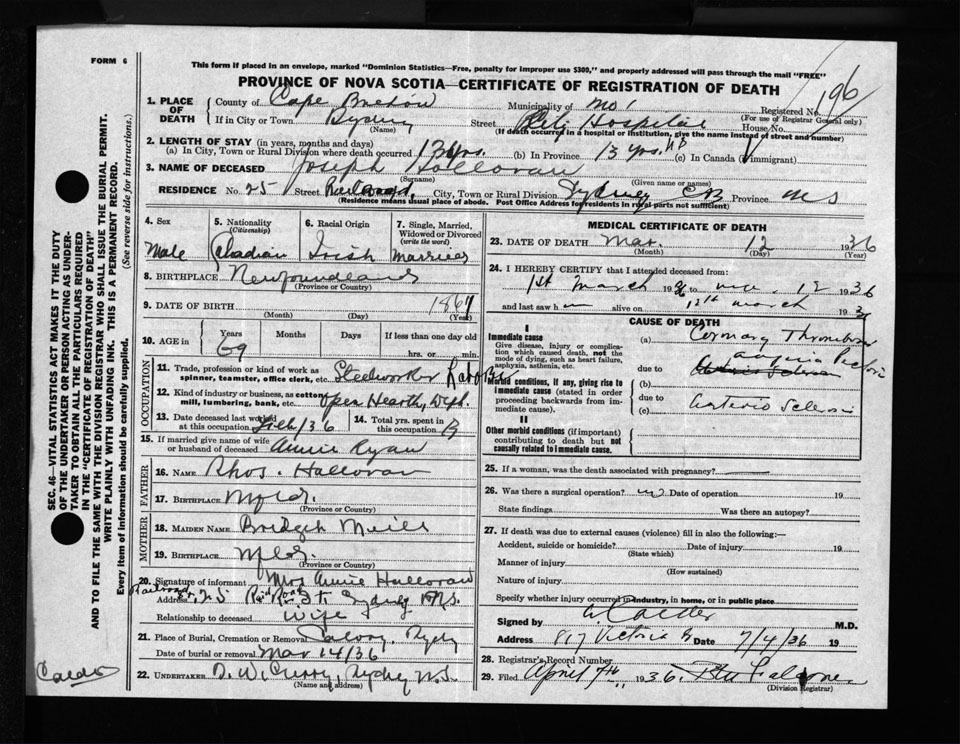 FORM 6
This form if placed in an envelope, marked "Dominion Statistics—Free, penalty for improper use $300," and properly addressed will pass through the mail "FREE"
PROVINCE OF NOVA SCOTIA—CERTIFICATE OF REGISTRATION OF DEATH
196
1. PLACE OF DEATH
County of Cape Breton Municipality of Registered No.
(For use of Registrar General only)
If in City or Town Sydney Street City Hospital House No.
(Name) (If death occurred in a hospital or institution, give the name instead of street and number)
2. LENGTH OF STAY (in years, months and days)
(a) In City, Town or Rural Division where death occurred 13 yrs. (b) In Province 13 yrs. (c) In Canada (if immigrant)
3. NAME OF DECEASED Joseph Halloran
(Surname) (Given name or names)
RESIDENCE No. 25 Street Railroad City, Town or Rural Division Sydney C B Province N S
(Residence means usual place of abode. Post Office Address for residents in rural parts not sufficient)
4. Sex
Male
5. Nationality
(Citizenship)
Canadian
6. Racial Origin
Irish
7. Single, Married, Widowed or Divorced
(write the word)
Married
8. BIRTHPLACE Newfoundland
(Province or Country)
9. DATE OF BIRTH 1867
(Month) (Day) (Year)
10. AGE in
Years Months Days If less than one day old
69 hrs. or min.
OCCUPATION
11. Trade, profession or kind of work as spinner, teamster, office clerk, etc. Steelworker Laborer
12. Kind of industry or business, as cotton mill, lumbering, bank, etc. Open Hearth, Dept.
13. Date deceased last worked at this occupation Feb/36
14. Total yrs. spent in this occupation
15. If married give name of wife or husband of deceased Annie Ryan
FATHER
16. NAME Thos. Halloran
17. BIRTHPLACE Nfld.
(Province or Country)
MOTHER
18. MAIDEN NAME Bridget
19. BIRTHPLACE Nfld.
(Province or Country)
20. Signature of informant Mrs Annie Halloran
Address 25 Railroad St. Sydney N.S.
Relationship to deceased Wife
21. Place of Burial, Cremation or Removal Calvary, Sydney
Date of burial or removal Mar 14/36
22. UNDERTAKER D. W. Curry, Sydney N.S.
(Name and address)
MEDICAL CERTIFICATE OF DEATH
23. DATE OF DEATH Mar. 12 1936
(Month) (Day) (Year)
24. I HEREBY CERTIFY that I attended deceased from:
1st March 1936 to Mar. 12 1936
and last saw h m alive on 12th March 193
CAUSE OF DEATH
I
Immediate cause
Give disease, injury or complication which caused death, not the mode of dying, such as heart failure, asphyxia, asthenia, etc.
(a) Coronary Thrombosis
due to Angina Pectoris
Morbid conditions, if any, giving rise to immediate cause (stated in order proceeding backwards from immediate cause).
(b)
due to
(c) Arterio Sclerosis
II
Other morbid conditions (if important) contributing to death but not causally related to immediate cause.
25. If a woman, was the death associated with pregnancy?
26. Was there a surgical operation? no Date of operation 19
State findings Was there an autopsy?
27. If death was due to external causes (violence) fill in also the following:—
Accident, suicide or homicide? Date of injury 19
(State which)
Manner of injury
(How sustained)
Nature of injury
Specify whether injury occurred in industry, in home, or in public place
Signed by Calder M.D.
Address 817 Victoria Date 7/4/36 19
28. Registrar's Record Number
29. Filed April 7th 1936
(Division Registrar)
SEC. 46—VITAL STATISTICS ACT MAKES IT THE DUTY OF THE UNDERTAKER OR PERSON ACTING AS UNDERTAKER TO OBTAIN ALL THE PARTICULARS REQUIRED IN THE "CERTIFICATE OF REGISTRATION OF DEATH" AND TO FILE THE SAME WITH THE DIVISION REGISTRAR WHO SHALL ISSUE THE BURIAL PERMIT.
WRITE PLAINLY WITH UNFADING INK. THIS IS A PERMANENT RECORD.
Every item of information should be carefully supplied. (See reverse side for instructions.)
Calder